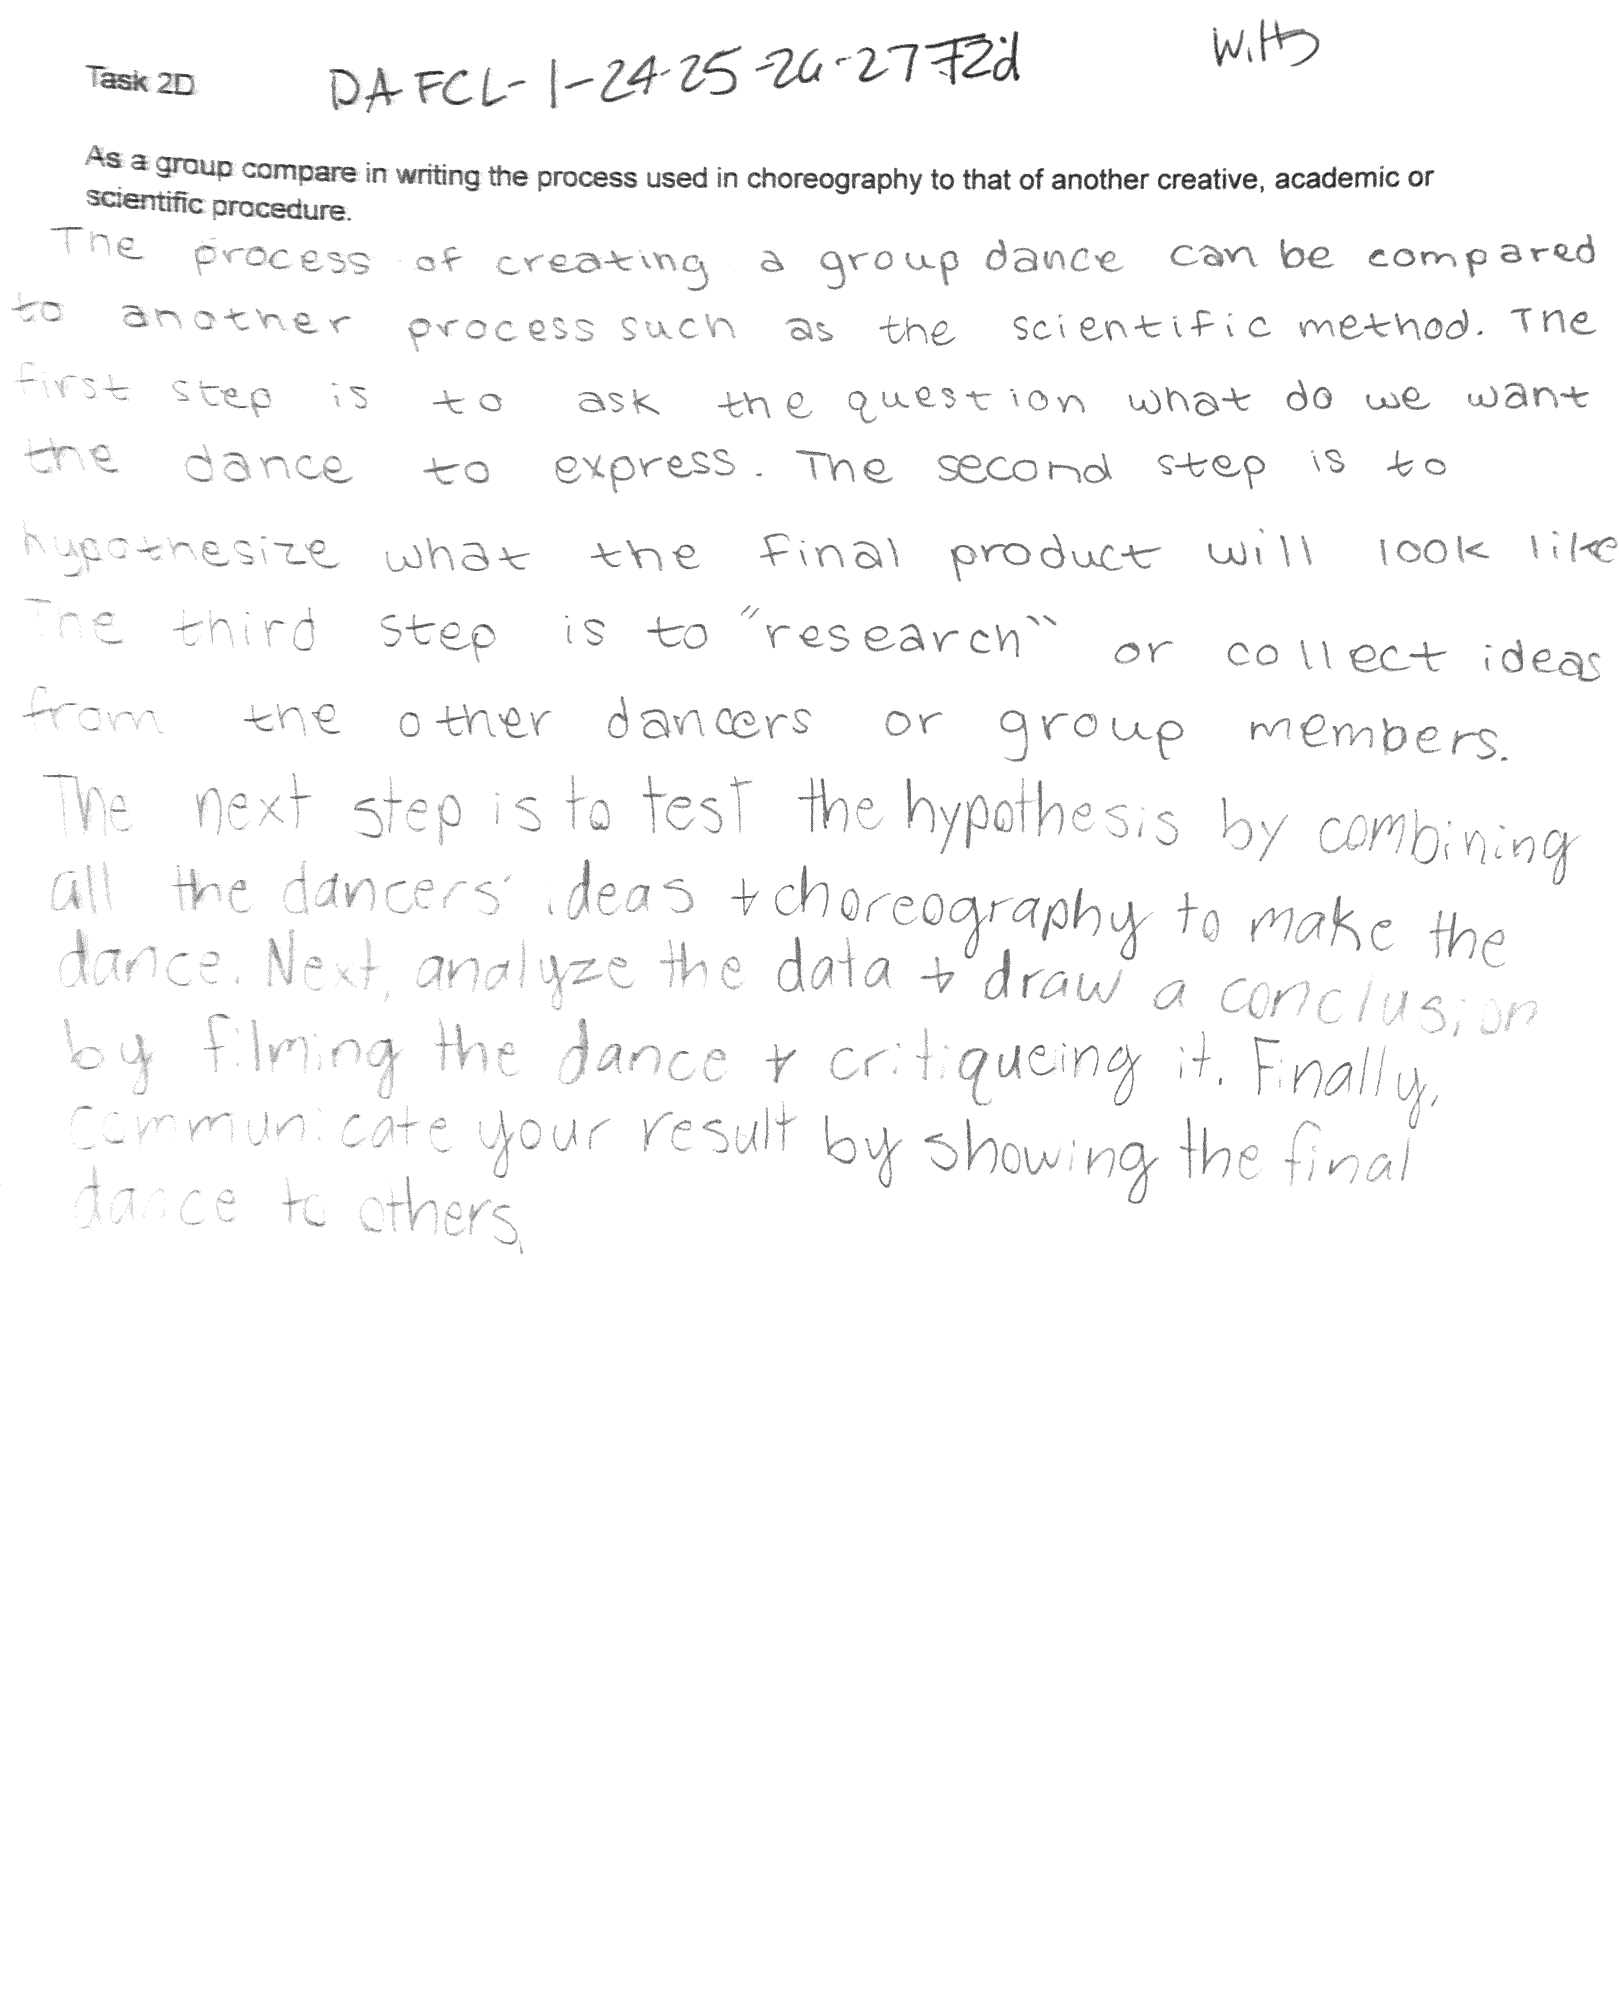 Task 2D DAFCL-1-24-25-26-27 T2d
As a group compare in writing the process used in choreography to that of another creative, academic or
scientific procedure.
The process of creating a group dance can be compared
to another process such as the scientific method. The
first step is to ask the question what do we want
the dance to express. The second step is to
hypothesize what the final product will look like
The third step is to "research" or collect ideas
from the other dancers or group members.
The next step is to test the hypothesis by combining
all the dancers' ideas + choreography to make the
dance. Next, analyze the data + draw a conclusion
by filming the dance + critiqueing it. Finally,
communicate your result by showing the final
dance to others.